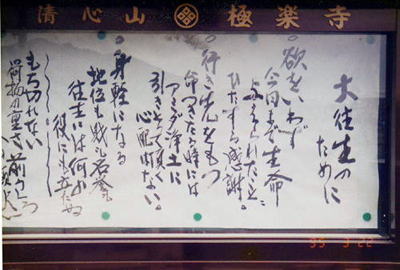 清心山 極楽寺
大往生の
ために
。欲をいわず
今日まで生命
与えられたことに
ひたすら感謝。
。行き先をもつ
命つきたる時には
アミダ浄土に
引きとって頂く
心配ない。
。身軽になる
地位も財も名誉も
往生には何の
役にも立たぬ
もち切れない
荷物の重さ前うしろ